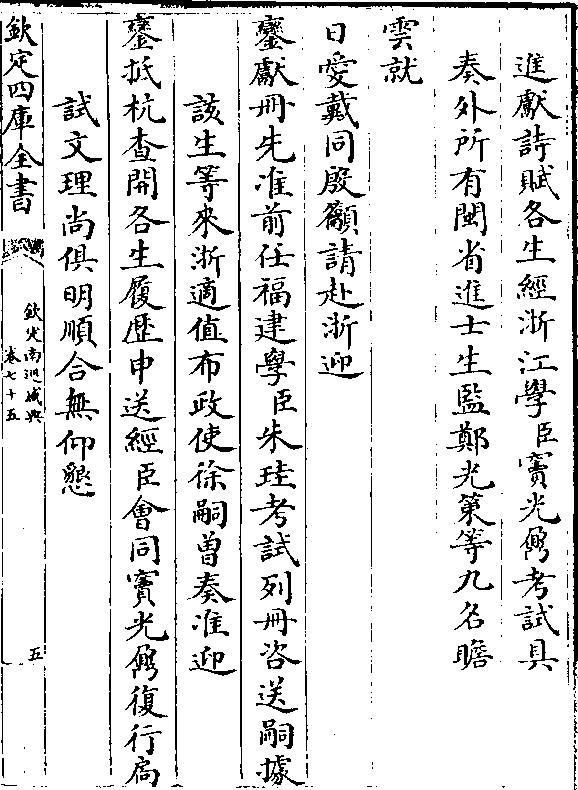 進獻詩賦各生經浙江學臣竇光鼐考試具
奏外所有閩省進士生監鄭光策等九名瞻
雲就
日愛戴同殷籲請赴浙迎
鑾獻冊先准前任福建學臣朱珪考試列冊咨送嗣據
該生等來浙適值布政使徐嗣曾奏准迎
鑾抵杭查開各生履歷申送經臣會同竇光鼐復行扃
試文理尚俱明順合無仰懇
欽定四庫全書
欽定南巡盛典
卷七十五
五